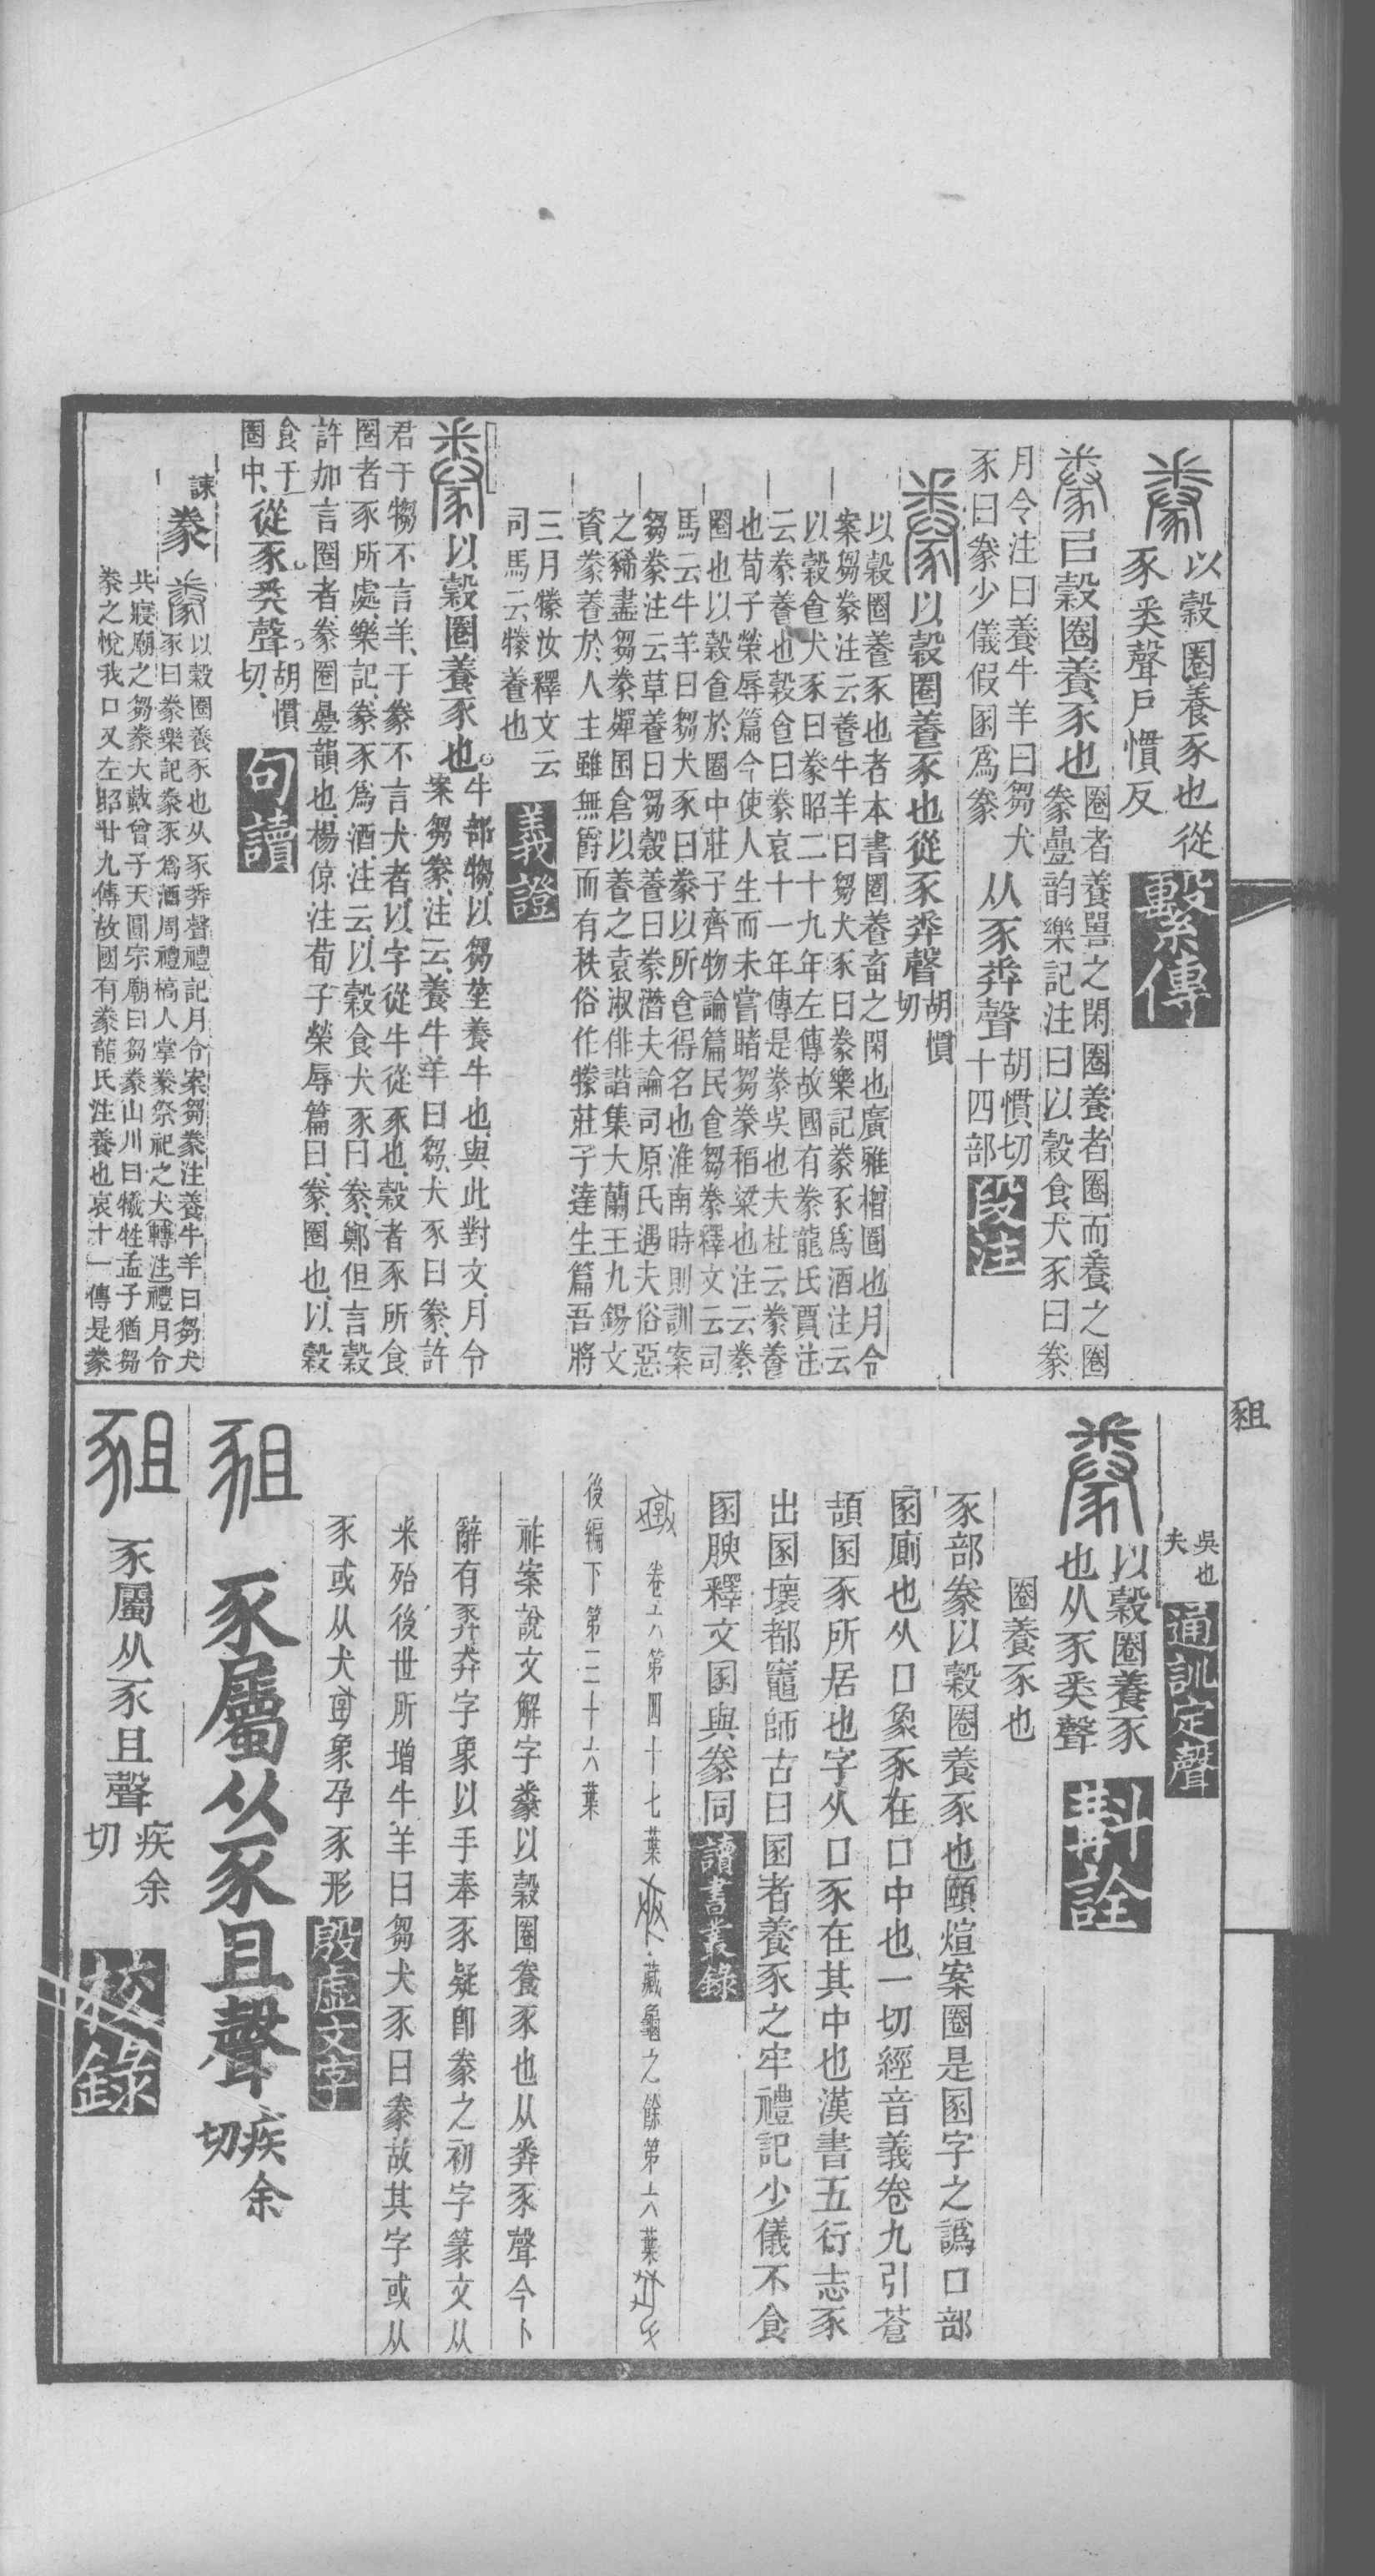 以穀圈養豕也從
豕𢍏聲戶慣反
繫傳
㠯穀圈養豕也
圈者養嘼之閑圈養者圈而養之圈
豢疊韵樂記注曰以穀食犬豕曰豢
月令注曰養牛羊曰芻犬
豕曰豢少儀假圂爲豢
从豕𢍏聲
胡慣切
十四部
段注
以穀圈養豕也從豕𢍏聲
胡慣
切
以穀圈養豕也者本書圈養畜之閑也廣雅檻圈也月令
案芻豢注云養牛羊曰芻犬豕曰豢樂記豢豕爲酒注云
以穀食犬豕曰豢昭二十九年左傳故國有豢龍氏賈注
云豢養也穀食曰豢哀十一年傳是豢吳也夫杜云豢養
也荀子榮辱篇今使人生而未嘗睹芻豢稻粱也注云豢
圈也以穀食於圈中莊子齊物論篇民食芻豢釋文云司
馬云牛羊曰芻犬豕曰豢以所食得名也淮南時則訓案
芻豢注云草養曰芻穀養曰豢潛夫論司原氏遇夫俗惡
之豨盡芻豢殫囷倉以養之袁淑俳諧集大蘭王九錫文
資豢養於人主雖無爵而有秩俗作㹖莊子達生篇吾將
三月㹖汝釋文云
司馬云㹖養也
義證
以穀圈養豕也
牛部犓以芻莝養牛也與此對文月令
案芻豢注云養牛羊曰芻犬豕曰豢許
君于犓不言羊于豢不言犬者以字從牛從豕也穀者豕所食
圈者豕所處樂記豢豕爲酒注云以穀食犬豕曰豢鄭但言穀
許加言圈者豢圈疊韻也楊倞注荀子榮辱篇曰豢圈也以穀
食于
圈中
從豕𢍏聲
胡慣
切
句讀
豢
以穀圈養豕也从豕𢍏聲禮記月令案芻豢注養牛羊曰芻犬
豕曰豢樂記豢豕爲酒周禮槁人掌豢祭祀之犬轉注禮月令
共寢廟之芻豢大戴曾子天圓宗廟曰芻豢山川曰犧牲孟子猶芻
豢之悅我口又左昭廿九傳故國有豢龍氏注養也哀十一傳是豢
吳也
夫
通訓定聲
以穀圈養豕
也从豕𢍏聲
斠詮
圈養豕也
豕部豢以穀圈養豕也頤煊案圈是圂字之譌口部
圂廁也从口象豕在口中也一切經音義卷九引蒼
頡圂豕所居也字从口豕在其中也漢書五行志豕
出圂壞都竈師古曰圂者養豕之牢禮記少儀不食
圂腴釋文圂與豢同
讀書叢錄
卷六第四十七葉
藏龜之餘第六葉
後編下第三十六葉
祚案說文解字豢以穀圈養豕也从𢍏豕聲今卜
辭有字象以手奉豕疑即豢之初字篆文从
釆殆後世所增牛羊曰芻犬豕曰豢故其字或从
豕或从犬象孕豕形
殷虛文字
豕屬从豕且聲
疾余
切
豕屬从豕且聲
疾余
切
校錄
豠